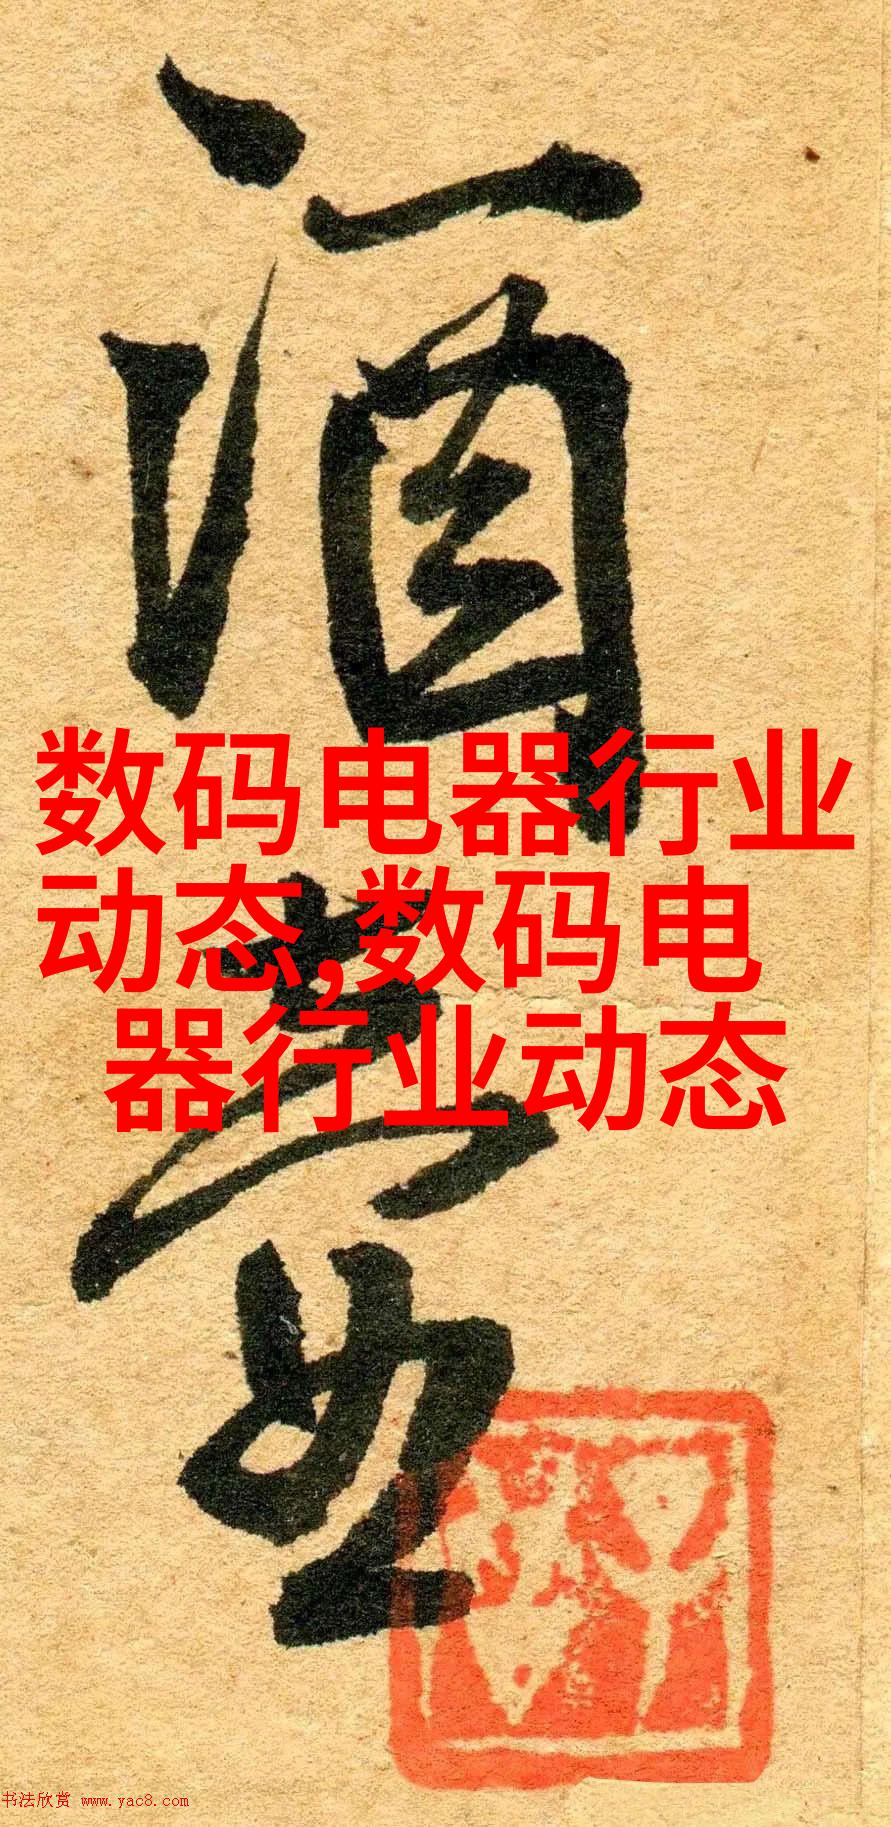 酒
数码电器行业
动态,数码电
器行业动态
书法欣赏 www.yac8.com